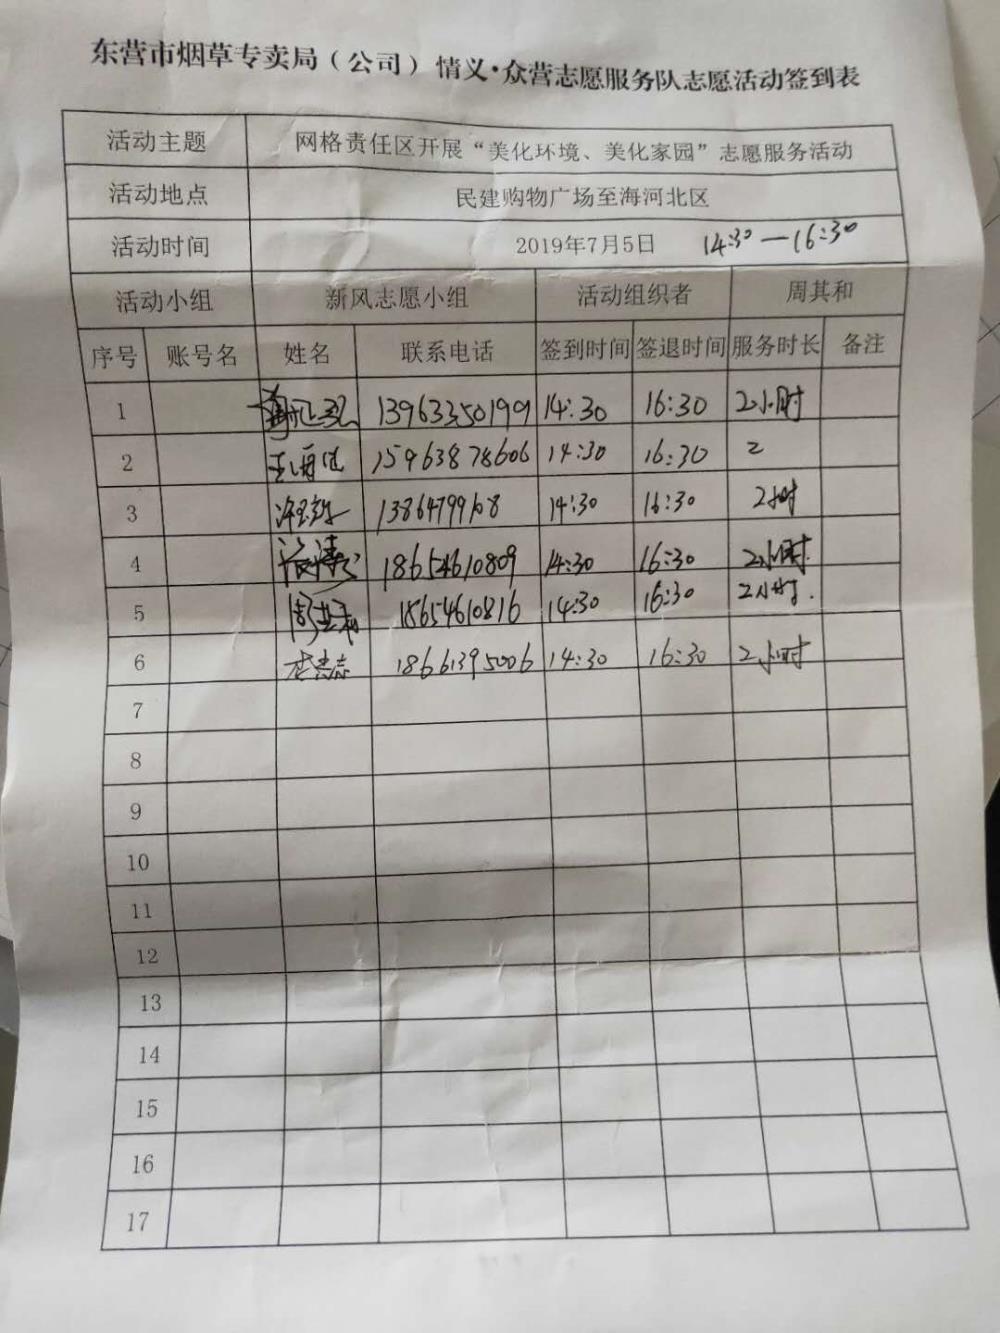 东营市烟草专卖局（公司）情义·众营志愿服务队志愿活动签到表
活动主题 网格责任区开展“美化环境、美化家园”志愿服务活动
活动地点 民建购物广场至海河北区
活动时间 2019年7月5日 14:30—16:30
活动小组 新风志愿小组 活动组织者 周其和
序号 账号名 姓名 联系电话 签到时间 签退时间 服务时长 备注
1 13963350199 14:30 16:30 2小时
2 15963878606 14:30 16:30 2
3 14:30 16:30 2小时
4 18654610809 14:30 16:30 2小时
5 周其和 18654610816 14:30 16:30 2小时.
6 18661395006 14:30 16:30 2小时
7
8
9
10
11
12
13
14
15
16
17